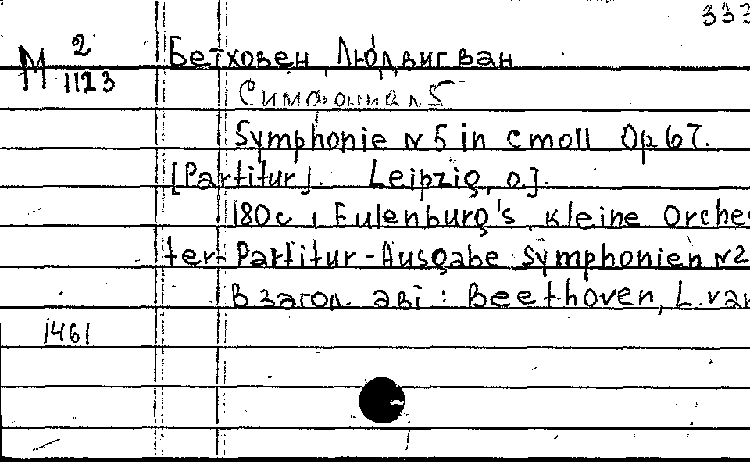 333
М 2
1123
Бетховен, Людвиг ван
Симфония N 5
Symphonie N 5 in c moll Op 67.
[Partitur]. Leipzig, o. J.
180 с, Eulenburg's kleine Orches
ter-Partitur-Ausgabe Symphonien N2
В загол. авт: Beethoven, L. van
1461